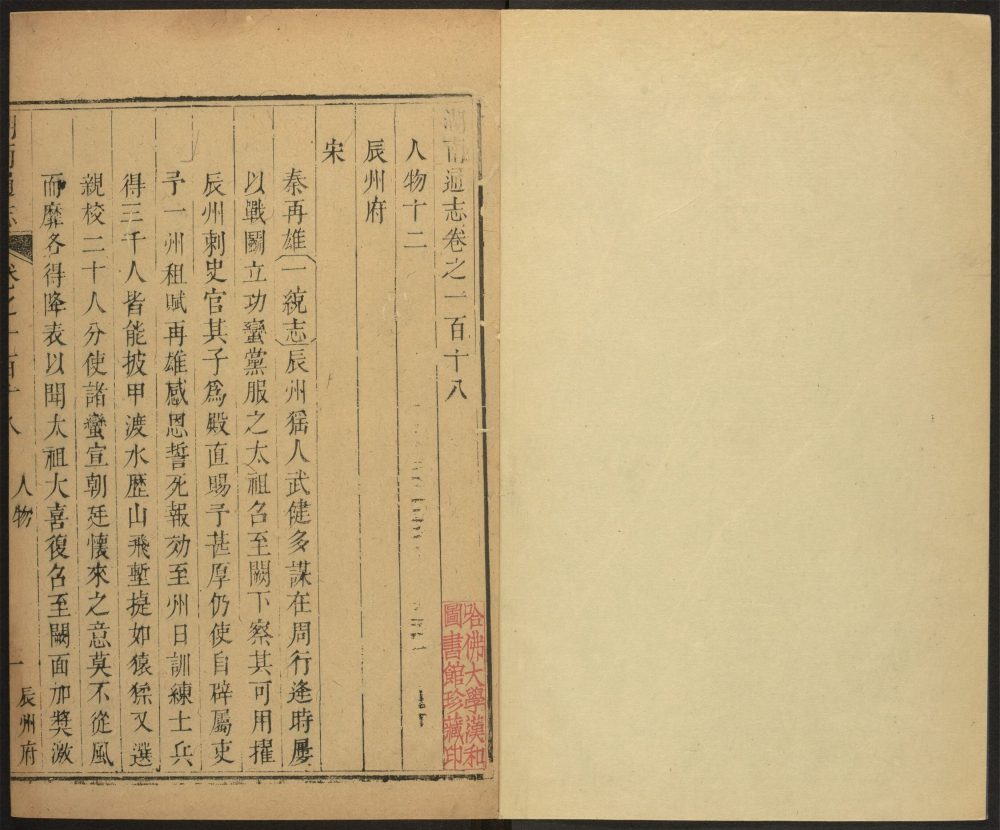 湖南通志卷之一百十八
人物十二
辰州府
宋
秦再雄一統志辰州猺人武健多謀在周行逢時屢
以戰鬬立功蠻黨服之太祖召至闕下察其可用擢
辰州刺史官其子爲殿直賜予甚厚仍使自辟屬吏
予一州租賦再雄感恩誓死報効至州日訓練土兵
得三千人皆能披甲渡水歷山飛塹捷如猿猱又選
親校二十人分使諸蠻宣朝廷懷來之意莫不從風
而靡各得降表以聞太祖大喜復召至闕面加奬激
湖南通志
卷之一百十八
人物
一
辰州府
哈佛大學漢和
圖書館珍藏印